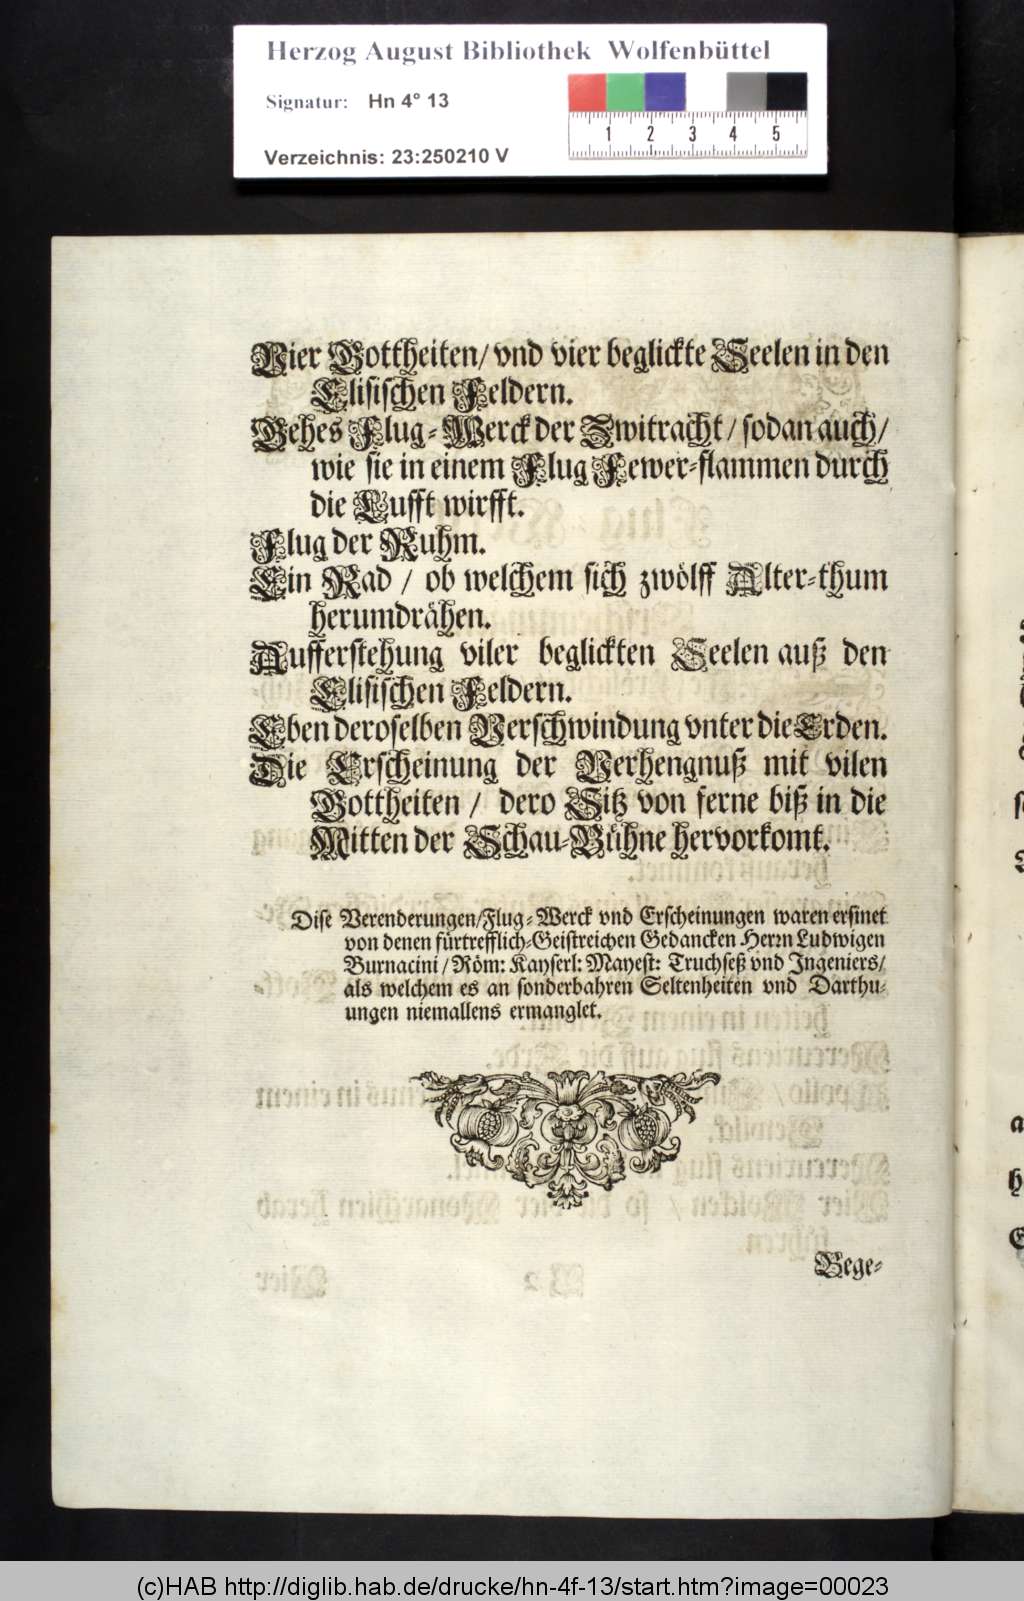 Herzog August Bibliothek Wolfenbüttel
Signatur: Hn 4° 13
Verzeichnis: 23:250210 V
1 2 3 4 5
Vier Gottheiten/ vnd vier beglickte Seelen in den
Elisischen Feldern.
Gehes Flug-Werck der Zwitracht/ sodan auch/
wie sie in einem Flug Fewer-flammen durch
die Lufft wirfft.
Flug der Ruhm.
Ein Rad / ob welchem sich zwölff Alter-thum
herumdrähen.
Aufferstehung viler beglickten Seelen auß den
Elisischen Feldern.
Eben deroselben Verschwindung vnter die Erden.
Die Erscheinung der Verhengnuß mit vilen
Gottheiten / dero Sitz von ferne biß in die
Mitten der Schau-Bühne hervorkomt.
Dise Verenderungen/Flug-Werck vnd Erscheinungen waren ersinet
von denen fürtrefflich-Geistreichen Gedancken Herrn Ludwigen
Burnacini / Röm: Kayserl: Mayest: Truchseß vnd Ingeniers/
als welchem es an sonderbahren Seltenheiten vnd Darthu-
ungen niemallens ermanglet.
Bege-
(c)HAB http://diglib.hab.de/drucke/hn-4f-13/start.htm?image=00023